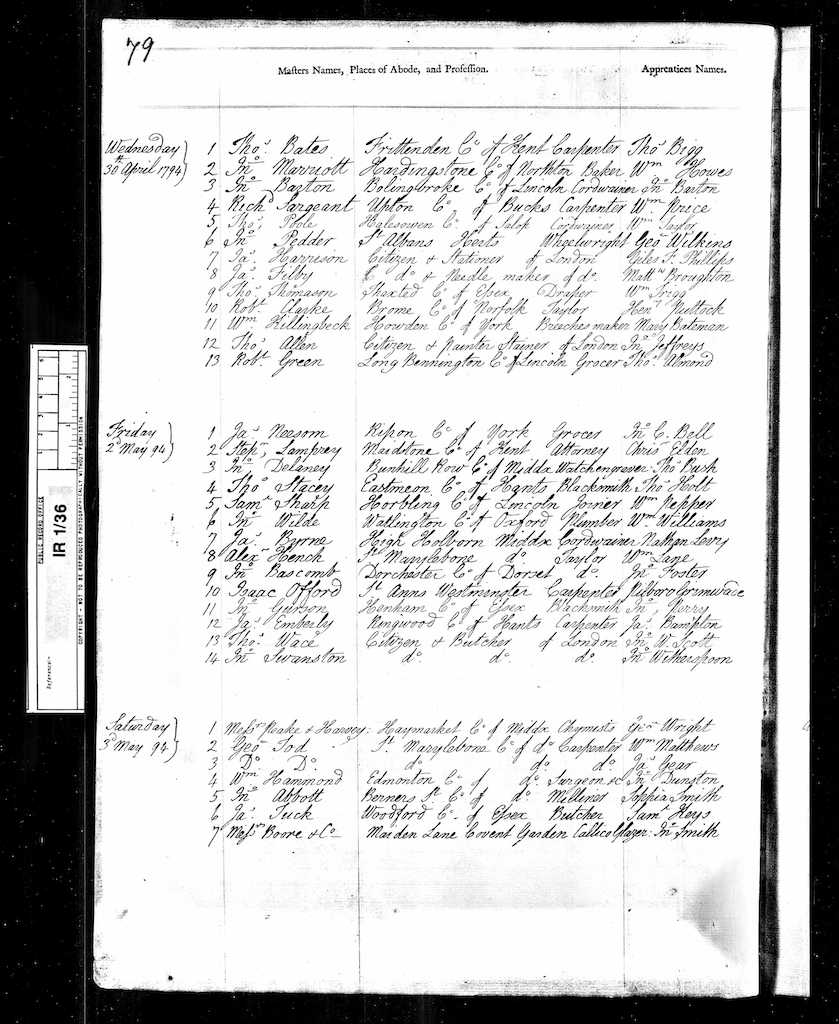 79
Masters Names, Places of Abode, and Profession. Apprentices Names.
Wednesday 30th April 1794
1 Thos. Bates Frittenden Co. of Kent Carpenter Thos. Bigg
2 Jno. Marriott Hardingstone Co. of Northton Baker Wm. Howes
3 Jno. Barton Bolingbroke Co. of Lincoln Cordwainer Jno. Barton
4 Richd. Sargeant Upton Co. of Bucks Carpenter Wm. Price
5 Thos. Poole Halesowen Co. of Salop Cordwainer Wm. Taylor
6 Jno. Pedder St. Albans Herts Wheelwright Geo. Wilkins
7 Ja. Harrison Citizen & Stationer of London Giles F. Phillips
8 Ja. Filby C. do. & Needle maker of do. Mattw. Broughton
9 Thos. Thomason Thaxted Co. of Essex Draper Wm. Trigg
10 Robt. Clarke Brome Co. of Norfolk Taylor Heny. Puttock
11 Wm. Killingbeck Howden Co. of York Breeches maker Mary Bateman
12 Thos. Allen Citizen & Painter Stainer of London Jno. Jeffreys
13 Robt. Green Long Bennington Co. of Lincoln Grocer Thos. Almond
Friday 2d. May 94
1 Ja. Neesom Ripon Co. of York Grocer Jno. C. Bell
2 Stepn. Lamprey Maidstone Co. of Kent Attorney Chrisr. Elden
3 Jno. Delaney Bunhill Row Co. of Middx Watch engraver Tho. Bush
4 Thos. Stacey Eastmeon Co. of Hants Blacksmith Thos. Holt
5 Saml. Sharp Horbling Co. of Lincoln Joiner Wm. Pepper
6 Jno. Wilde Watlington Co. of Oxford Plumber Wm. Williams
7 Ja. Byrne High Holborn Middx Cordwainer Nathan Levy
8 Alexr. Hench St. Marylebone do. Taylor Wm. Lane
9 Jno. Bascomb Dorchester Co. of Dorset do. Jno. Foster
10 Isaac Offord St. Anns Westminster Carpenter Grimwade
11 Jno. Henham Co. of Essex Blacksmith Jno. Perry
12 Ja. Emberly Ringwood Co. of Hants Carpenter Ja. Bampton
13 Thos. Wace Citizen & Butcher of London Jno. W. Scott
14 Jno. Swanston do. do. do. Jno. Witherspoon
Saturday 3d. May 94
1 Messrs. Peake & Harvey Haymarket Co. of Middx Chymists Geo. Wright
2 Geo. Tod St. Marylebone Co. of do. Carpenter Wm. Matthews
3 Do. Do. do. do. do. Ja. Gear
4 Wm. Hammond Edmonton Co. of do. Surgeon &c Jno. Dunston
5 Jno. Abbott Berners St. Co. of do. Milliner Sophia Smith
6 Ja. Tuck Woodford Co. of Essex Butcher Saml. Keys
7 Messrs. Boore & Co. Maiden Lane Covent Garden Callico Glazer Jno. Smith
PUBLIC RECORD OFFICE
IR 1/36
Reference:-
COPYRIGHT - NOT TO BE REPRODUCED PHOTOGRAPHICALLY WITHOUT PERMISSION